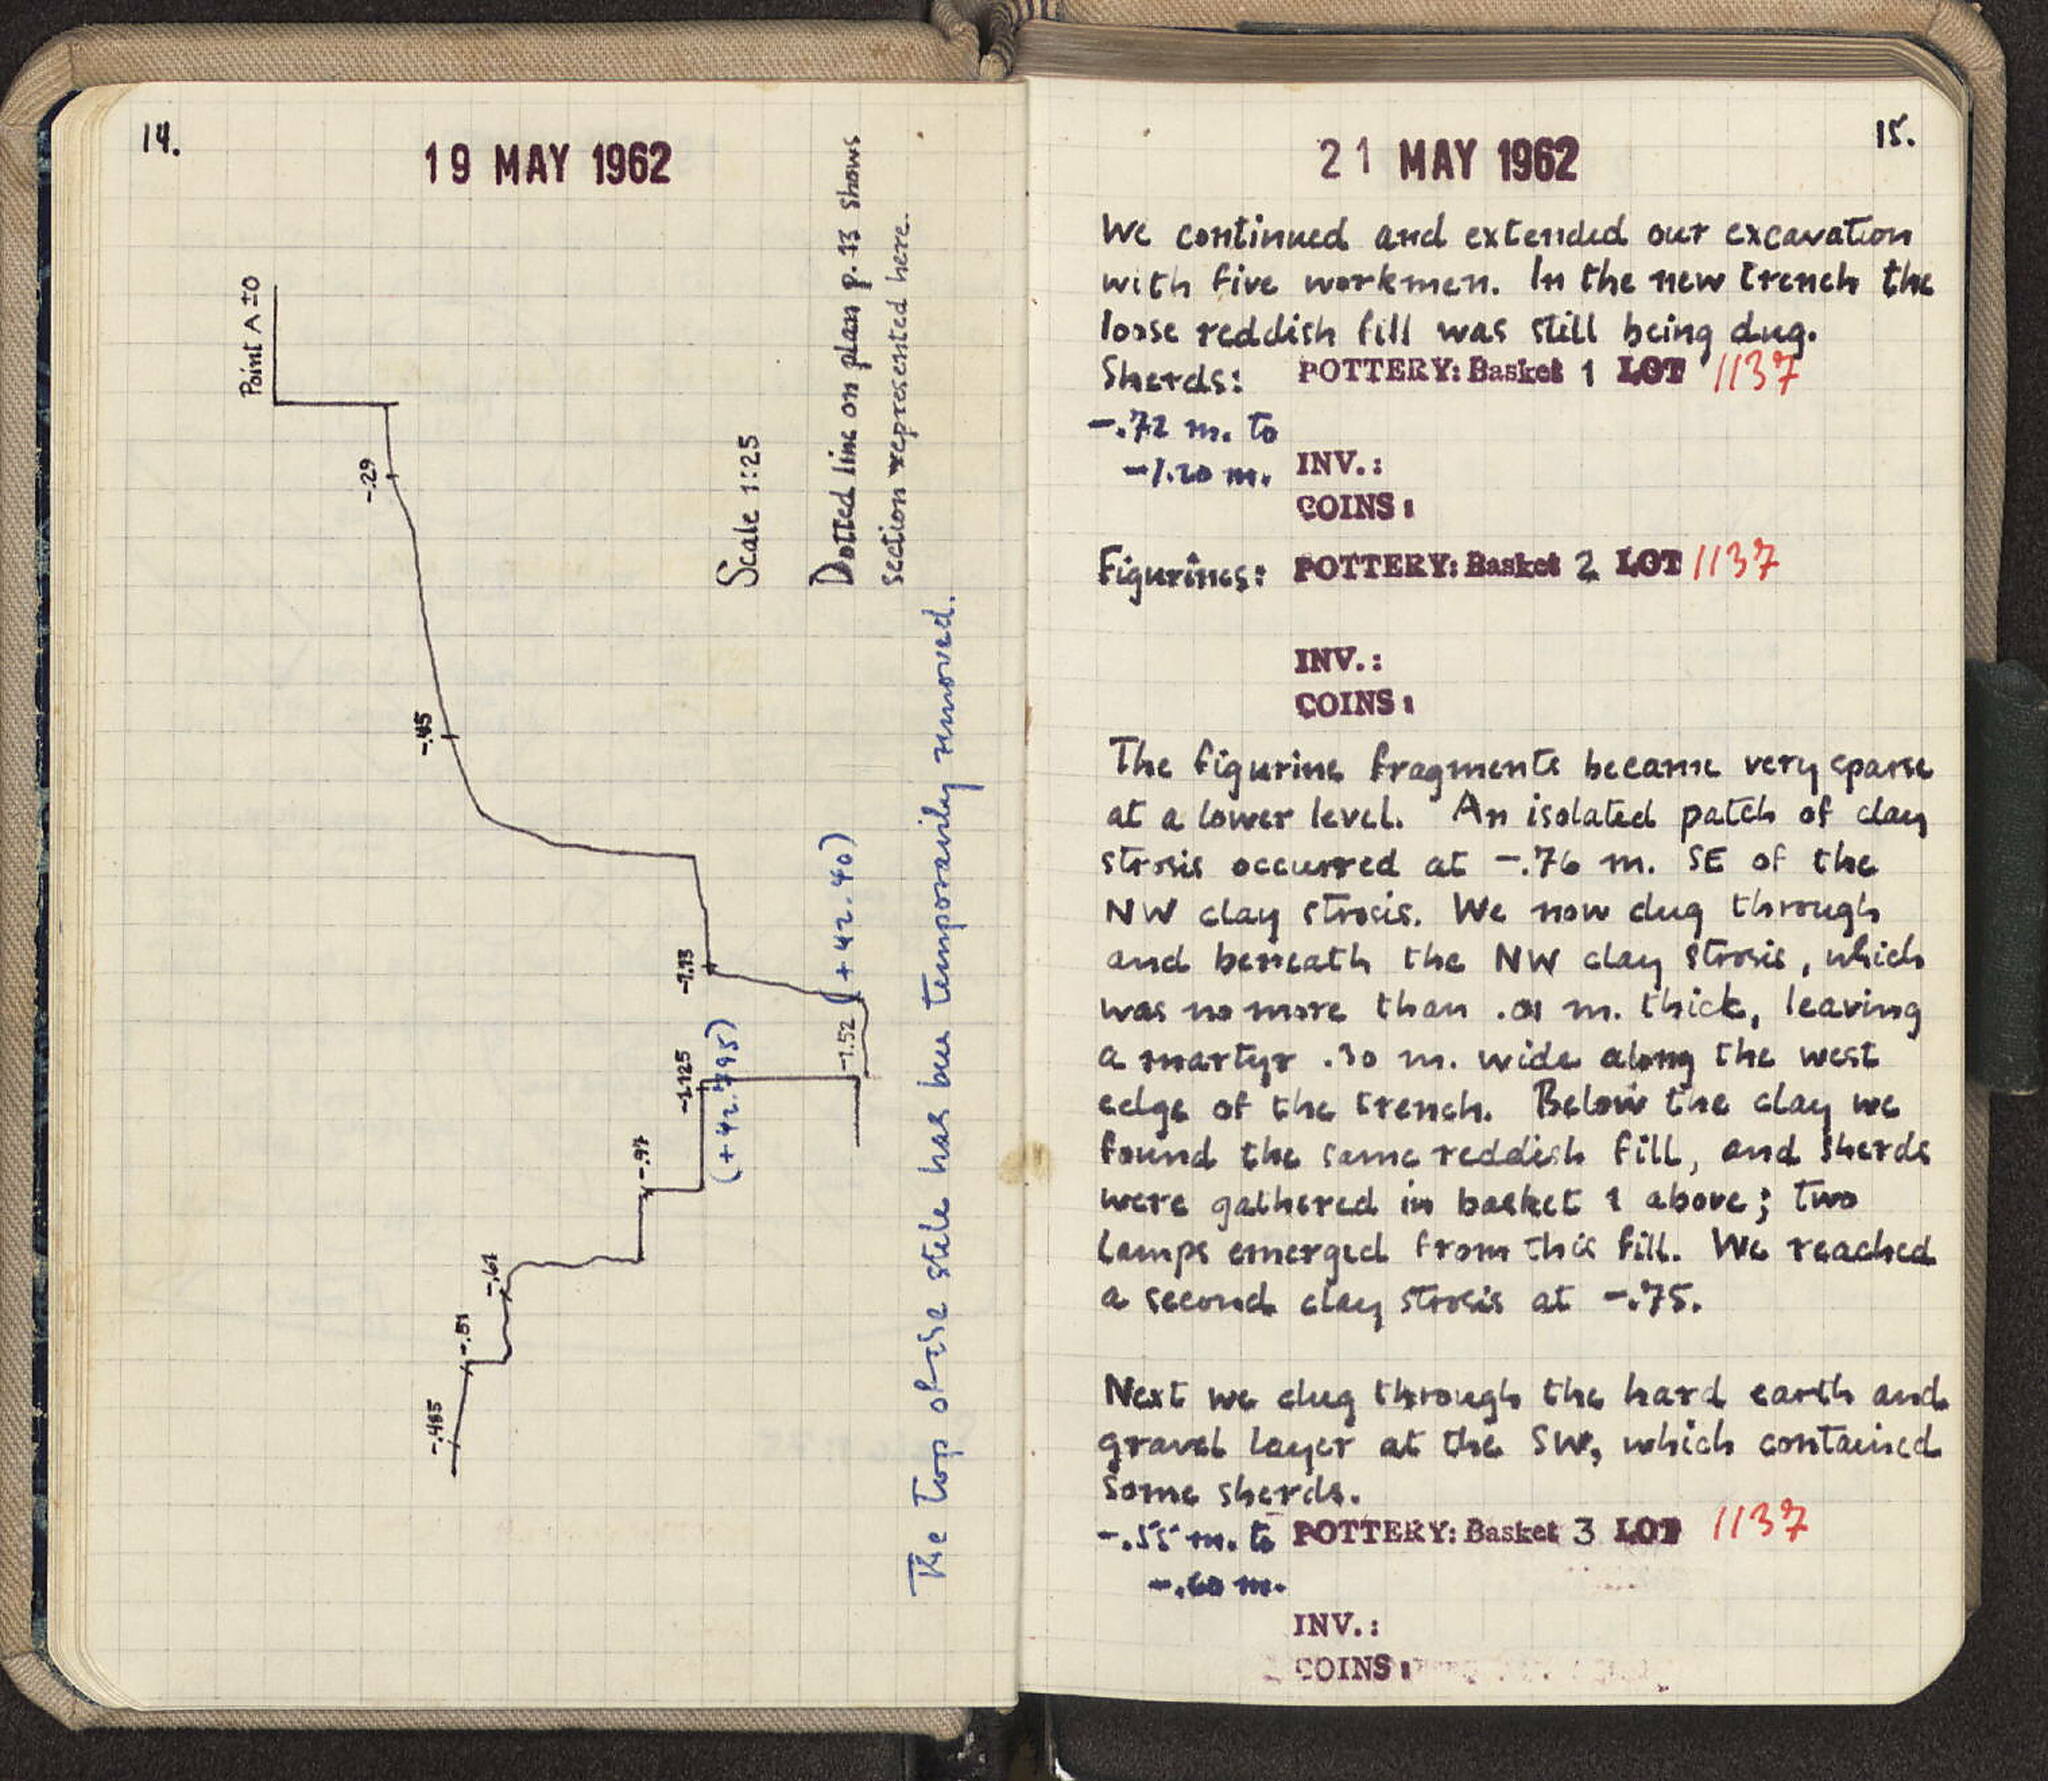 14.
19 MAY 1962
Point A ±0
-.29
-.45
-1.13
-1.52
(+42.40)
-1.125
(+42.795)
-.97
-.61
-.51
-.485
Scale 1:25
Dotted line on plan p. 13 shows
section represented here.
The top of the stele has been temporarily removed.
15.
21 MAY 1962
We continued and extended our excavation
with five workmen. In the new trench the
loose reddish fill was still being dug.
Sherds: POTTERY: Basket 1 LOT 1137
-.72 m. to
-1.20 m. INV.:
COINS:
Figurines: POTTERY: Basket 2 LOT 1137
INV.:
COINS:
The figurine fragments became very sparse
at a lower level. An isolated patch of clay
strosis occurred at -.76 m. SE of the
NW clay strosis. We now dug through
and beneath the NW clay strosis, which
was no more than .01 m. thick, leaving
a martyr .30 m. wide along the west
edge of the trench. Below the clay we
found the same reddish fill, and sherds
were gathered in basket 1 above; two
lamps emerged from this fill. We reached
a second clay strosis at -.75.
Next we dug through the hard earth and
gravel layer at the SW, which contained
some sherds.
-.55 m. to POTTERY: Basket 3 LOT 1137
-.60 m.
INV.:
COINS: